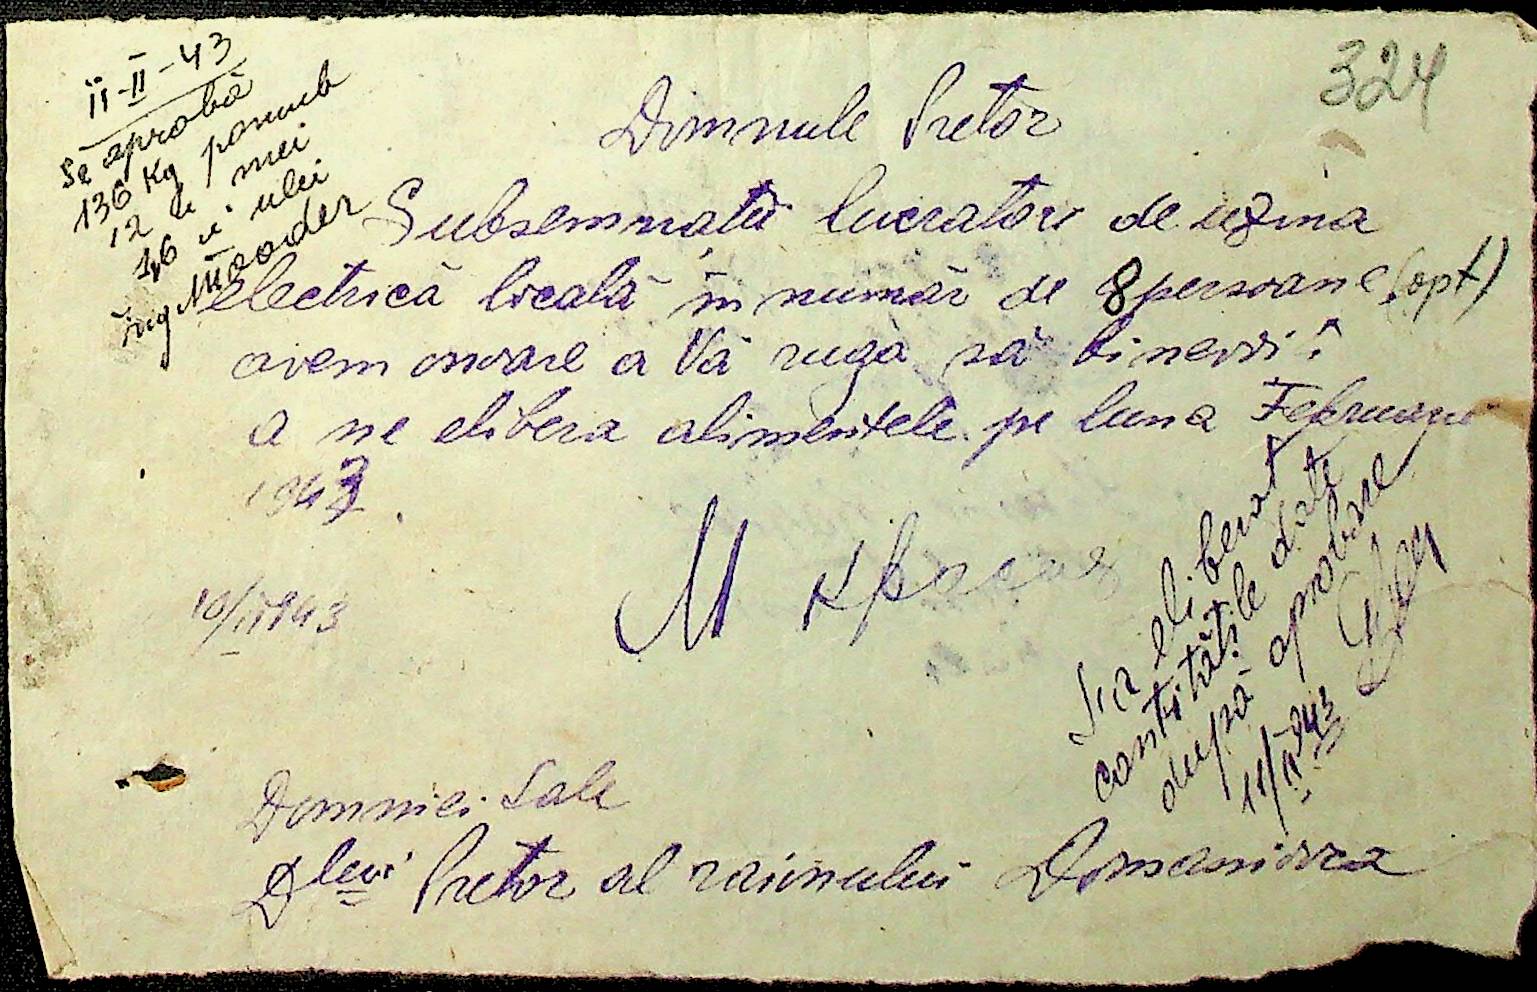 II-II-43
Se aprobă
136 Kg porumb
12 " mei
1,6 " ulei
ing
324
Domnule Pretor
Subsemnatii lucratori de uzina
electrică locală in număr de 8 persoane (opt)
avem onoare a Vă rugà să binevoiti
a ne elibera alimentele pe luna Februarie
1943.
10/II 1943
M
S'a eliberat
cantitățile date
după aprobare
11/II 943
Domniei Sale
Dlui Pretor al raionului Domaniovca